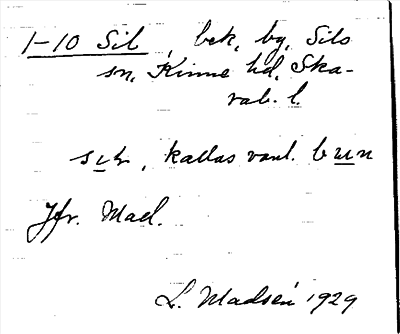 1-10 Sil, bek, by, Sils
sn, Kinne hd, Ska-
rab. l.
kallas vanl. bun
Jfr. Mad.
L. Madsén 1929